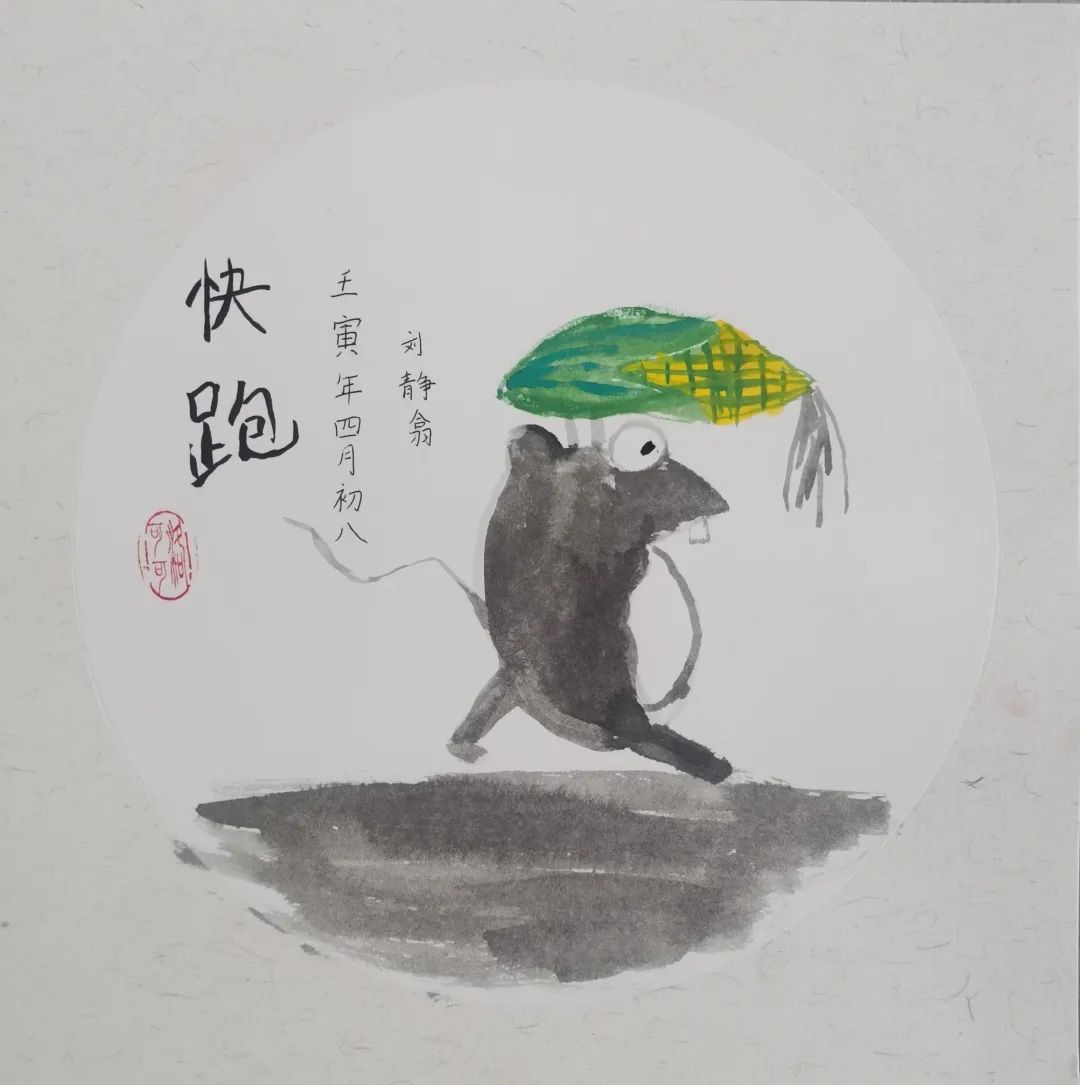 快跑
壬寅年四月初八
刘静翕